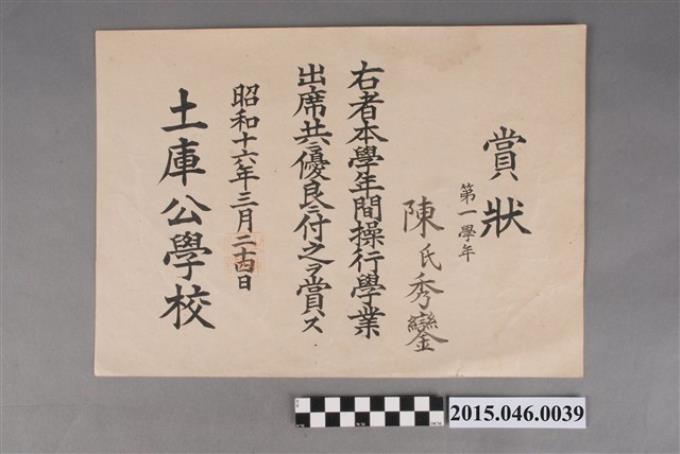 賞狀
第一學年
陳氏秀鑾
右者本學年間操行學業
出席共ニ優良ニ付之ヲ賞ス
昭和十六年三月二十四日
土庫公學校
2015.046.0039